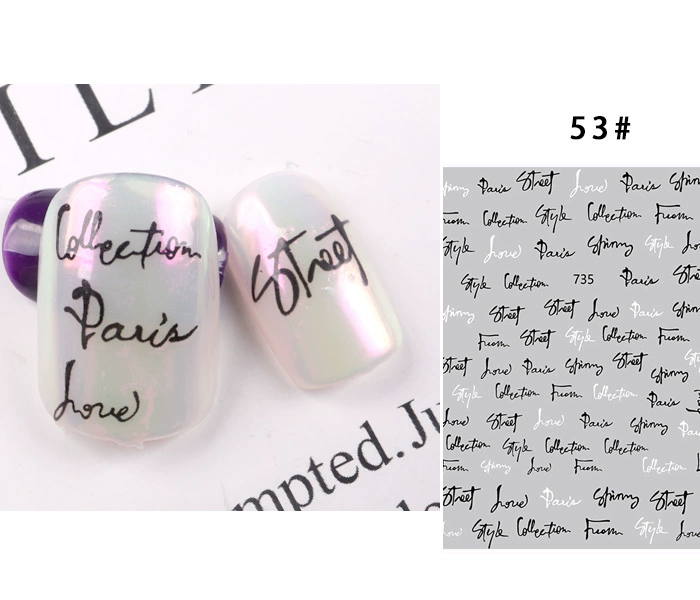 Collection
Paris
Love
Street
mpted. Ju
53#
Paris Street Love Paris
Collection Style Collection From
Style Love Paris Spinny Style
Style Collection 735 Paris
Street Street Love Paris
From Street Style Collection From
Street Love Paris Spinny Street Spinny
Style Collection From Collection Paris
Love Street Love Paris Spinny Paris
Collection Style Collection Collection
From Spinny Love From Collection
Street Love Paris Spinny Street
Style Collection From Style Love